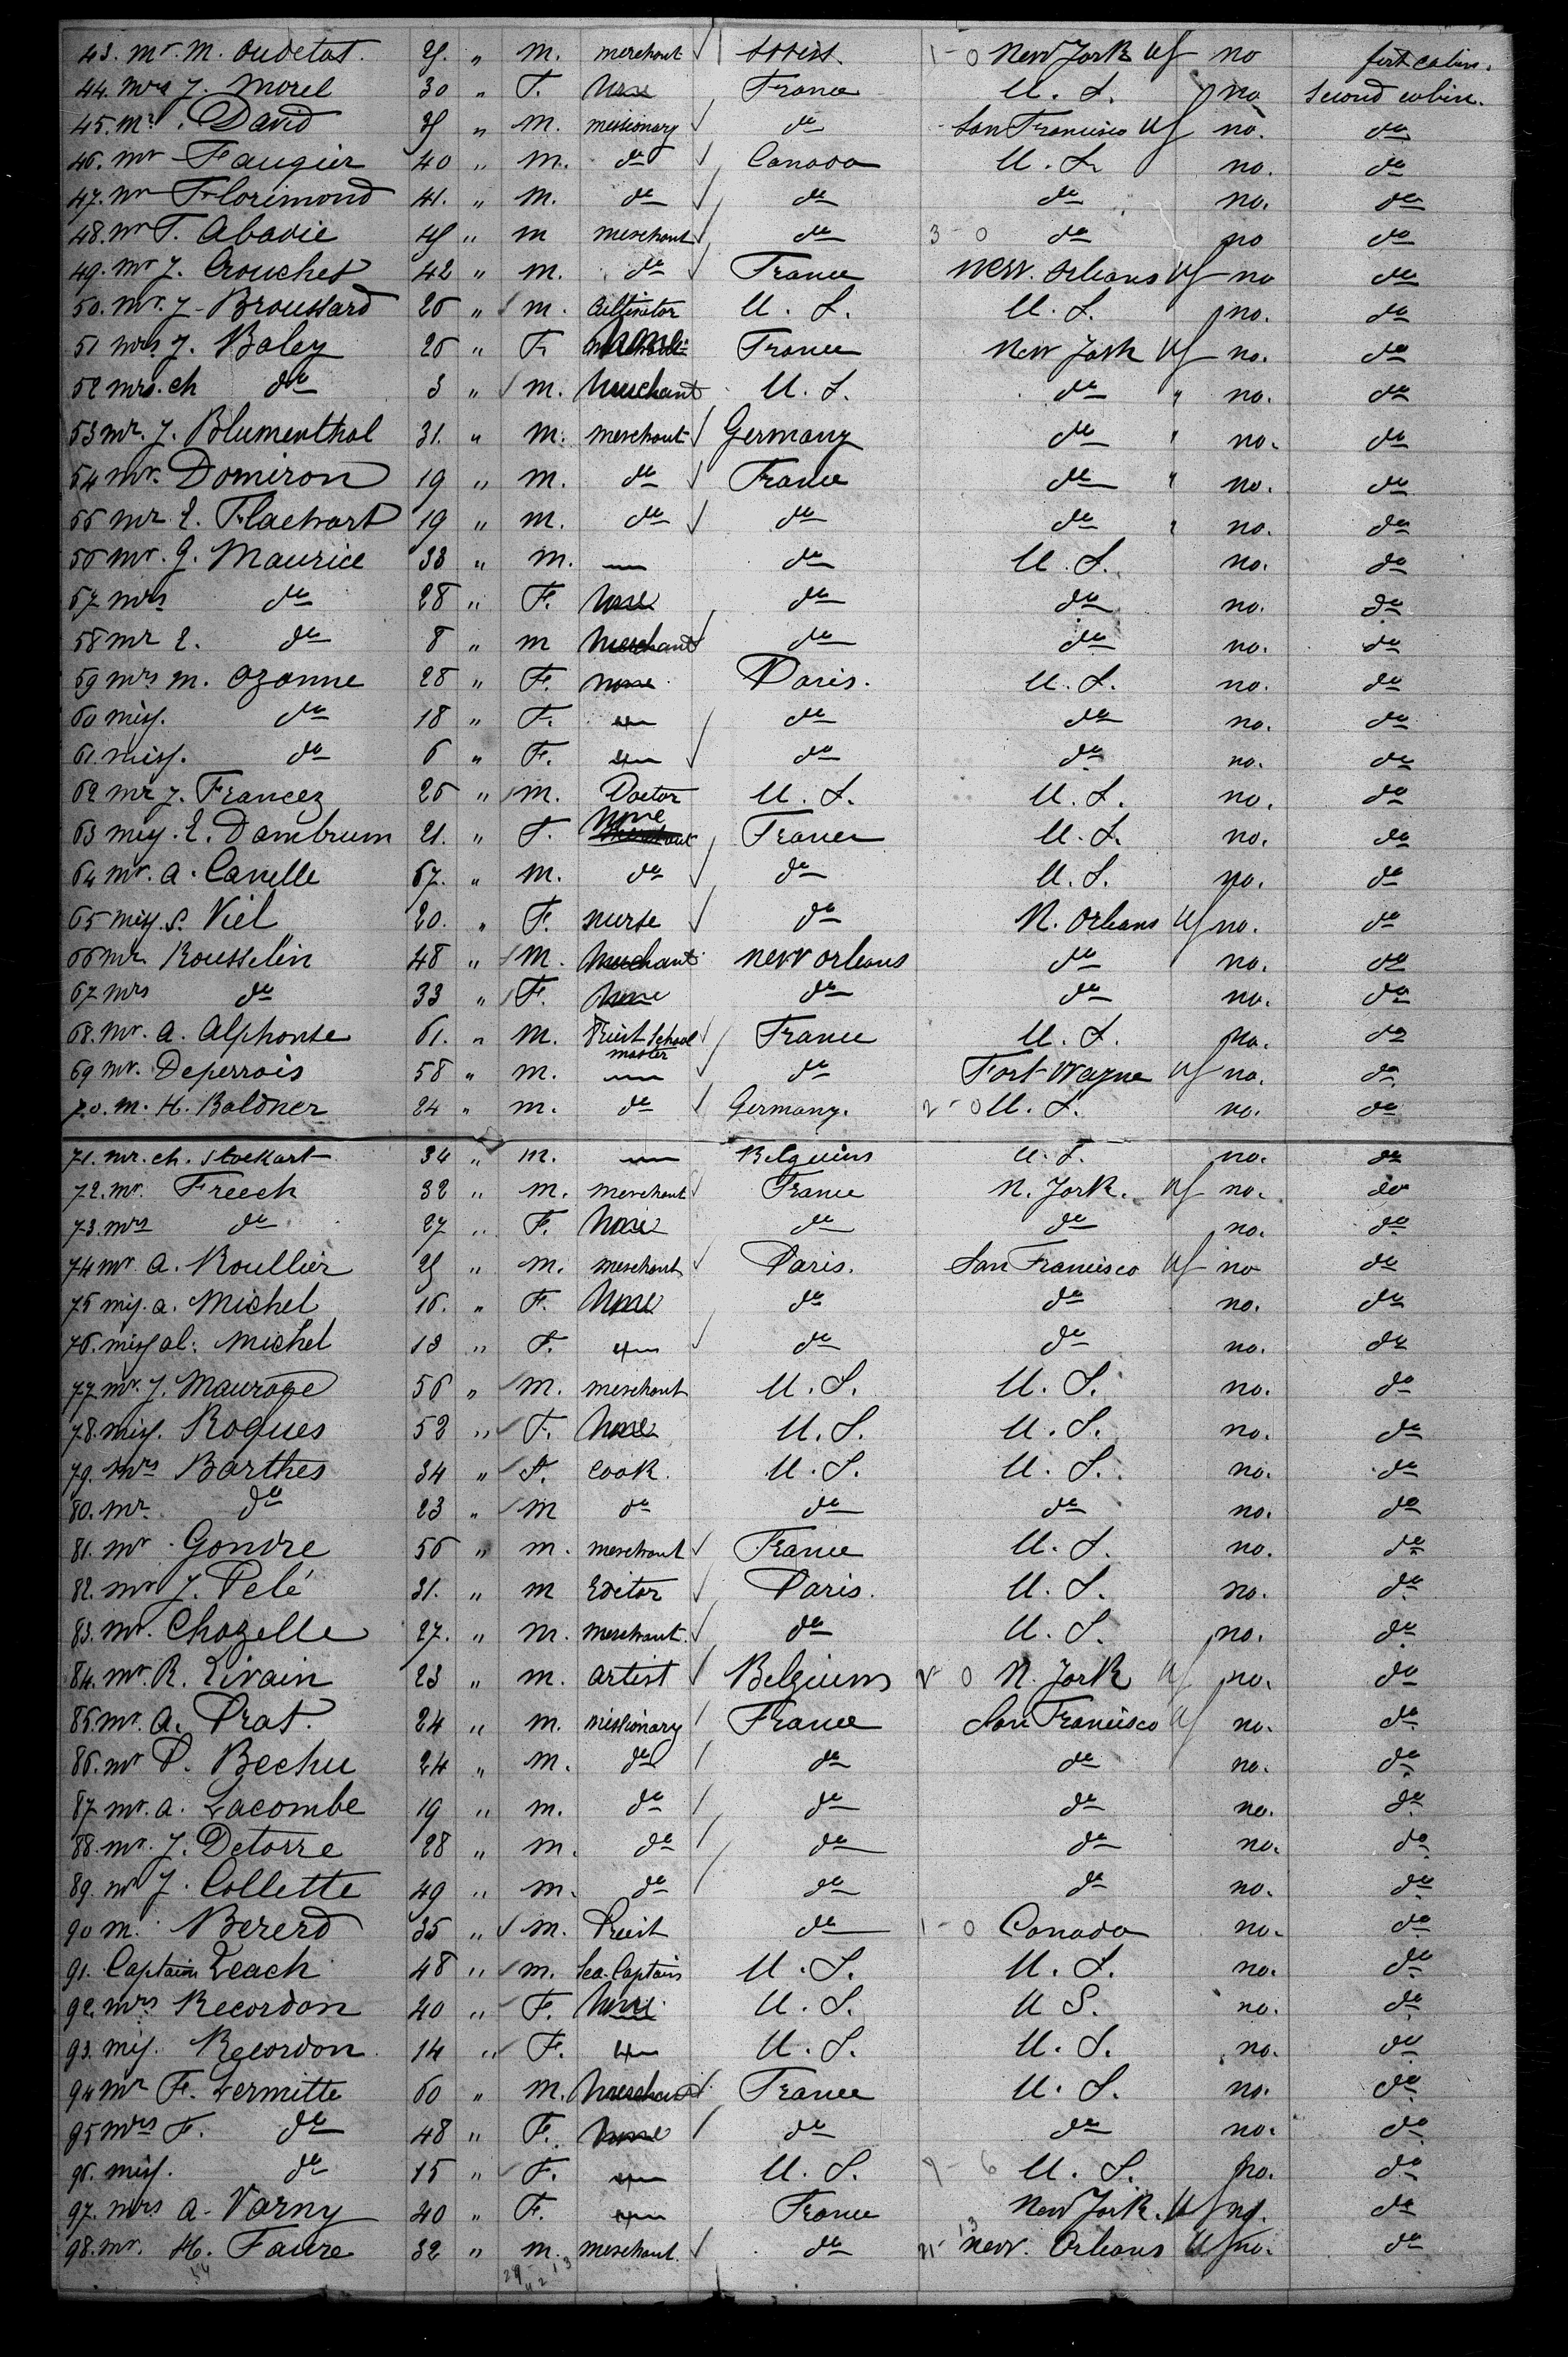 43. mr. M. Oudetat. 29. " m. merchant swiss. 1-0 New York US no first cabin.
44. mrs J. Morel 30 " F. None France U. S. no Second cabin.
45. mr. David 29 " m. missionary do San Francisco US no. do
46. mr Faugier 40 " m. do Canada U. S. no. do
47. mr Florimond 41. " m. do do do no. do
48. mr T. Abadie 49 " m merchant do 3-0 do no do
49. mr J. Crouchet 42 " m. do France New. Orleans US no do
50. mr. J. Broussard 26 " m. Cultivator U. S. U. S. no. do
51 mrs J. Baley 26 " F. None France New York US no. do
52 mrs. ch do 3 " m. Merchant U. S. do " no. do
53 mr. J. Blumenthal 31. " m. merchant Germany do " no. do
54 mr. Domiron 19 " m. do France do " no. do
55 mr E. Flachart 19 " m. do do do " no. do
56 mr. G. Maurice 33 " m. — do U. S. no. do
57 mrs do 28 " F. None do do no. do
58 mr E. do 8 " m Merchant do do no. do
59 mrs m. Ozanne 28 " F. None Paris. U. S. no. do
60 miss. do 18 " F. — do do no. do
61. miss. do 6 " F. — do do no. do
62 mr J. Francez 26 " m. Doctor U. S. U. S. no. do
63 miss. E. Dambrum 21. " F. None France U. S. no. do
64 mr. A. Canelle 67. " m. do do U. S. no. do
65 miss. S. Viel 20. " F. nurse do N. Orleans US no. do
66 mr. Rousselin 48 " m. Merchant new orleans do no. do
67 mrs do 33 " F. None do do no. do
68. mr. A. Alphonse 61. " m. Priest School master France U. S. no. do
69 mr. Deperrois 58 " m. — do Fort Wayne US no. do
70. m. H. Baldner 24 " m. do Germany. 2-0 U. S. no. do
71. mr. ch. Stockart 34 " m. — Belgium U. S. no. do
72. mr. Freech 32 " m. merchant France N. York. US no. do
73. mrs do 27 " F. None do do no. do
74 mr A. Roullier 29 " m. merchant Paris. San Francisco US no do
75 mis. a. Michel 16. " F. None do do no. do
76. miss al. Michel 13 " F. — do do no. do
77 mr. J. Maurage 56 " m. merchant U. S. U. S. no. do
78. miss. Roques 52 " F. None U. S. U. S. no. do
79. mrs Barthes 34 " F. Cook. U. S. U. S. no. do
80. mr. do 23 " m do do do no. do
81. mr Gondre 56 " m. merchant France U. S. no. do
82. mr J. Pelé 31. " m Editor Paris. U. S. no. do
83. mr. Chazelle 27. " m. merchant. do U. S. no. do
84. mr. R. Livain 23 " m. artist Belgium 2 0 N. York US no. do
85. mr. A. Prat. 24 " m. missionary France San Francisco US no. do
86. mr P. Bechu 24 " m. do do do no. do
87 mr. a. Lacombe 19 " m. do do do no. do
88. mr. J. Detorre 28 " m. do do do no. do
89. mr J. Collette 49 " m. do do do no. do
90 m. Bererd 35 " m. Priest do 1-0 Canada no. do
91. Captain Leach 48 " m. Sea. Captain U. S. U. S. no. do
92. mrs Recordon 40 " F. None U. S. U S. no. do
93. mis. Recordon 14 " F. — U. S. U. S. no. do
94 mr F. Lermitte 60 " m. Merchant France U. S. no. do
95 mrs F. do 48 " F. None do do no. do
96. miss. do 15 " F. — U. S. 9-6 U. S. no. do
97. mrs a. Varny 40 " F. — France New York. US no. do
98. mr. H. Faure 32 " m. merchant. do 21-13 New. Orleans US no. do